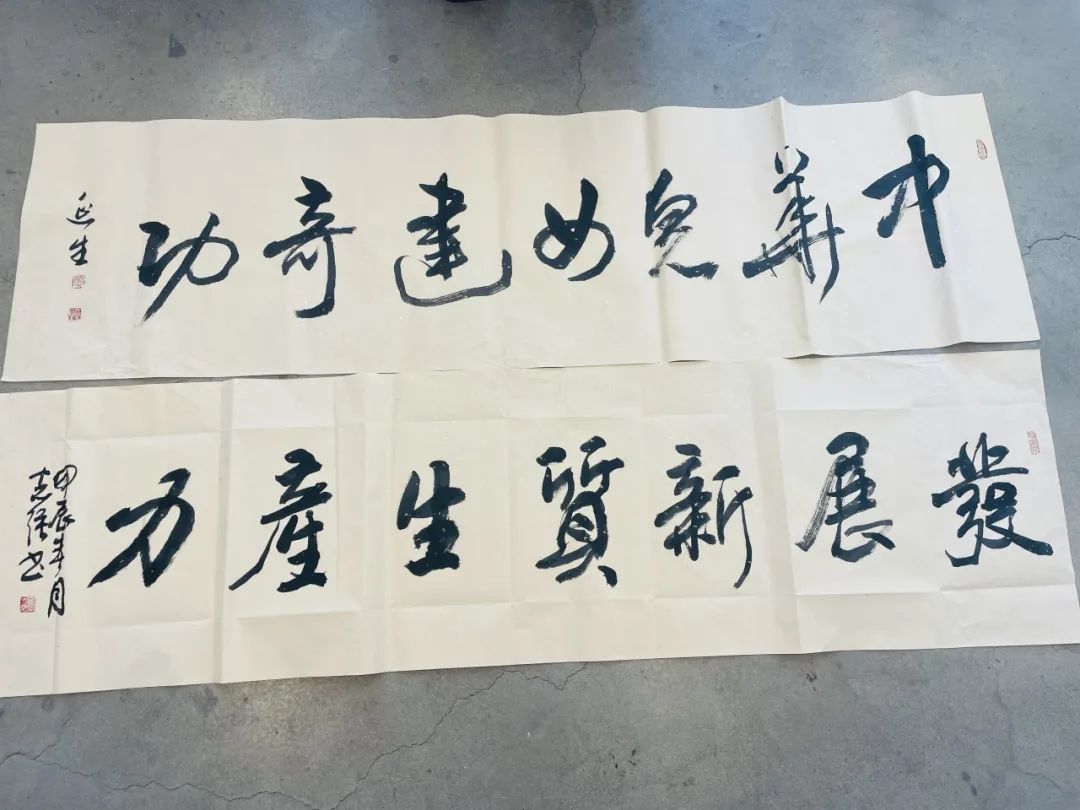 中華兒女建奇功
延生
發展新質生產力
甲辰年月
志强书